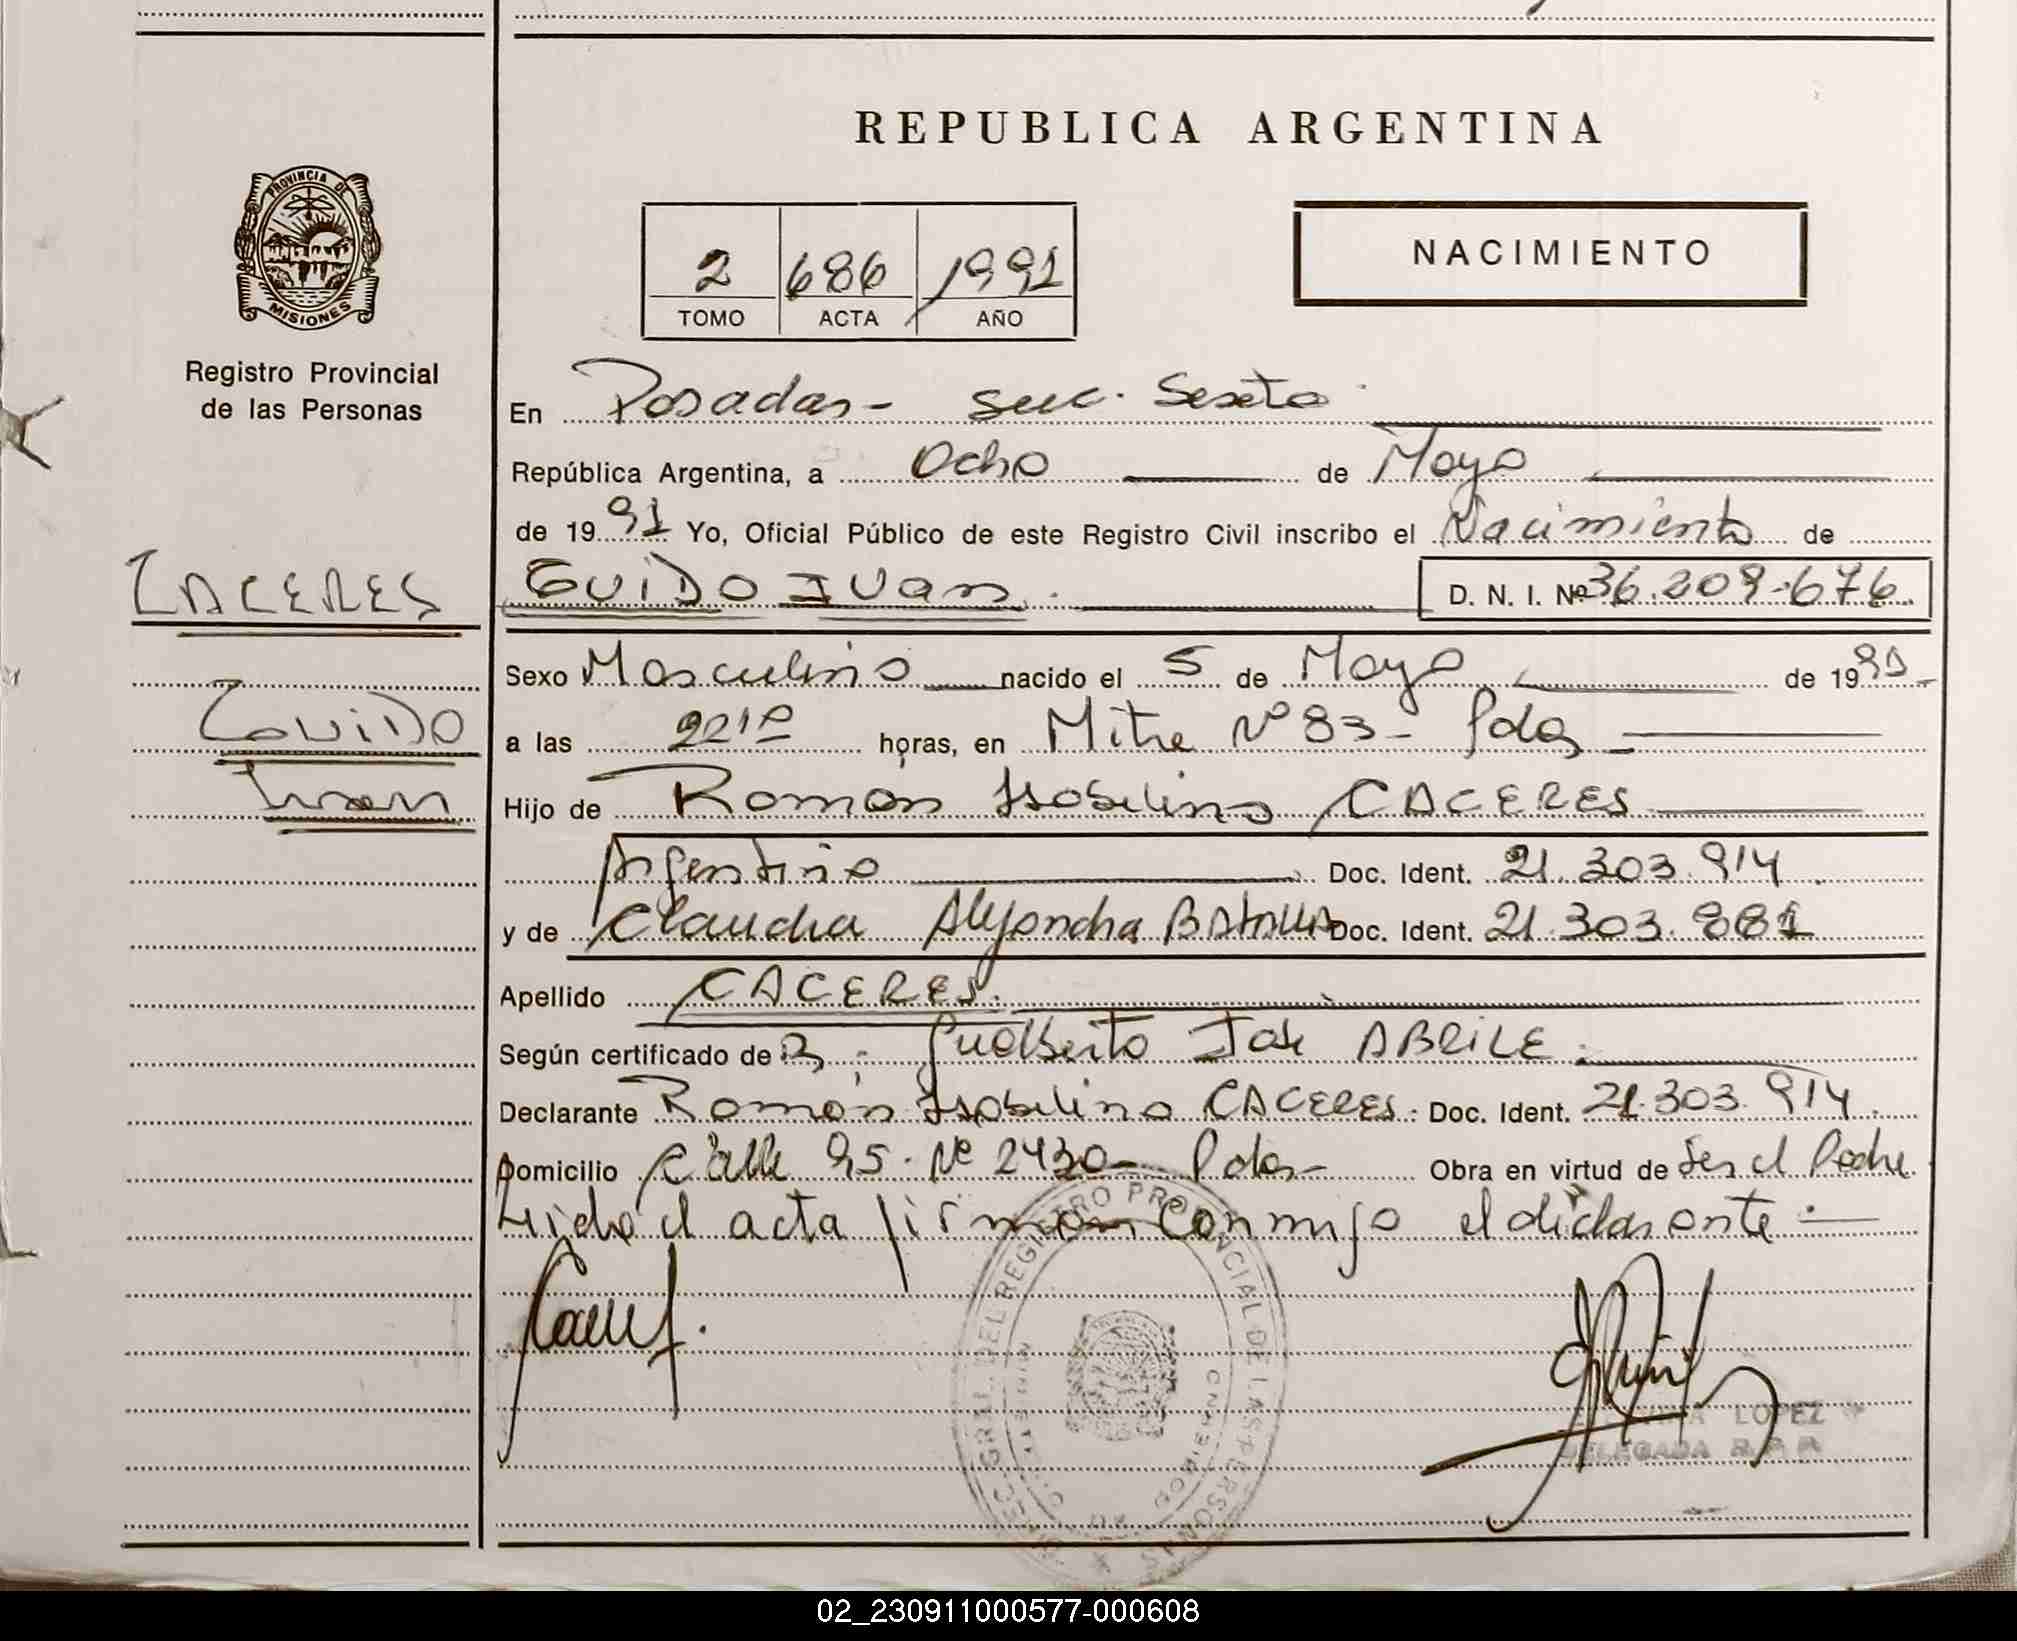 REPUBLICA ARGENTINA
PROVINCIA DE
MISIONES
Registro Provincial
de las Personas
2 686 1991
TOMO ACTA AÑO
NACIMIENTO
En Posadas- suc. Sexta
República Argentina, a Ocho de Mayo
de 1991 Yo, Oficial Público de este Registro Civil inscribo el Nacimiento de
CACERES
GUIDO IVan. D. N. I. Nº 36.209.676.
Sexo Masculino nacido el 5 de Mayo de 1991-
GUIDO
a las 22 10 horas, en Mitre Nº 83- Pdas
Ivan
Hijo de Ramón Isabelino CACERES
Argentino Doc. Ident. 21.303.914
y de Claudia Alejandra Doc. Ident. 21.303.881
Apellido CACERES.
Según certificado de Gualberto José ABRILE.
Declarante Ramón Isabelino CACERES. Doc. Ident. 21.303.914.
Domicilio Calle 95. Nº 2430- Pdas- Obra en virtud de ser el Padre
Leída el acta firman conmigo el declarante.
GRAL. DEL REGISTRO PROVINCIAL DE LAS PERSONAS
LOPEZ
DELEGADA R. P. P.
02_230911000577-000608